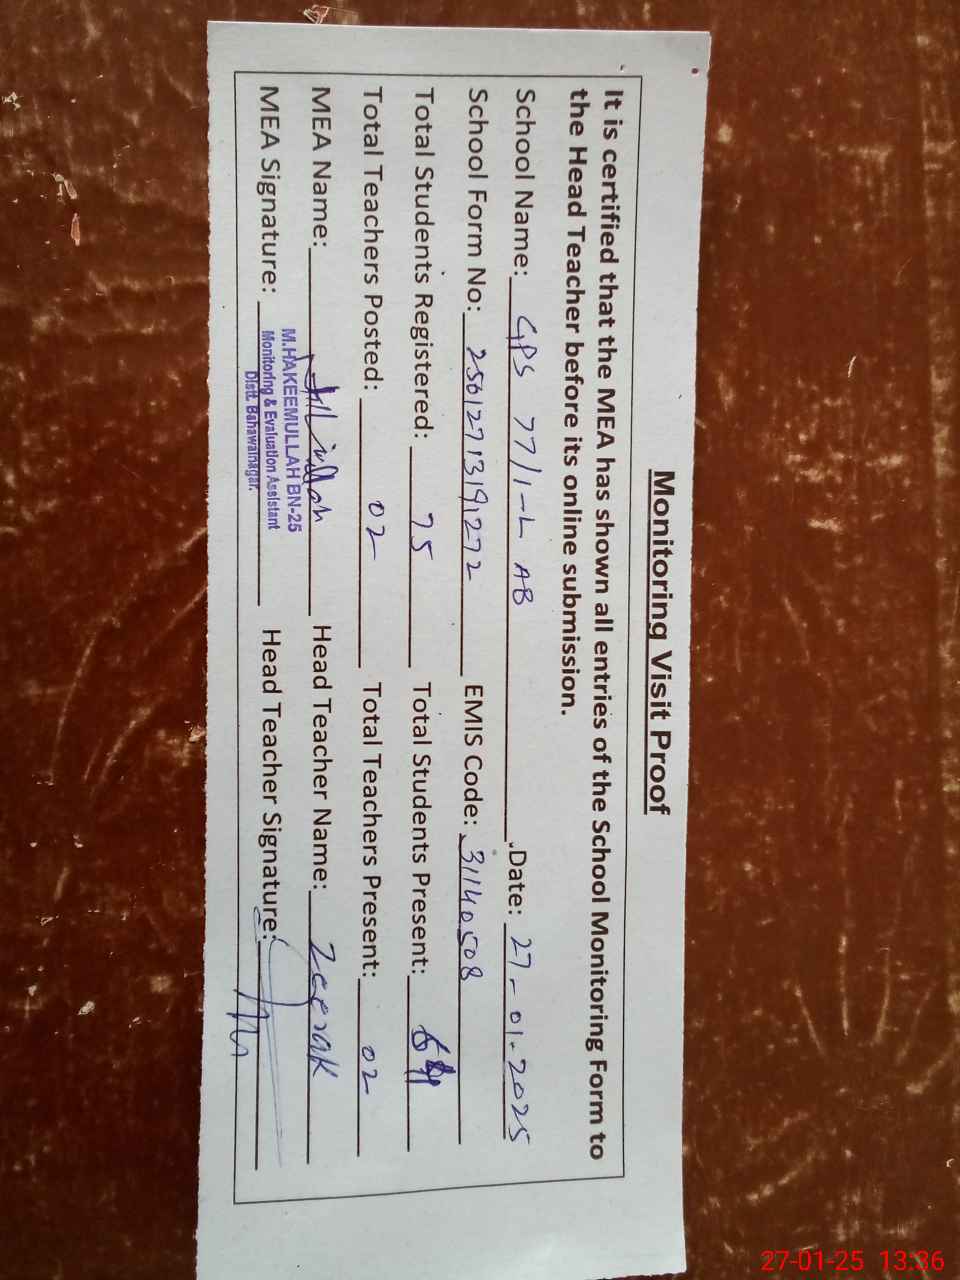 Monitoring Visit Proof
It is certified that the MEA has shown all entries of the School Monitoring Form to
the Head Teacher before its online submission.
School Name: GPS 77/1-L AB Date: 27-01-2025
School Form No: 25612713191272 EMIS Code: 31140508
Total Students Registered: 75 Total Students Present:
Total Teachers Posted: 02 Total Teachers Present: 02
MEA Name: Head Teacher Name: Zeerak
MEA Signature: Head Teacher Signature:
M.HAKEEMULLAH BN-25
Monitoring & Evaluation Assistant
Distt. Bahawalnagar.
27-01-25 13:36